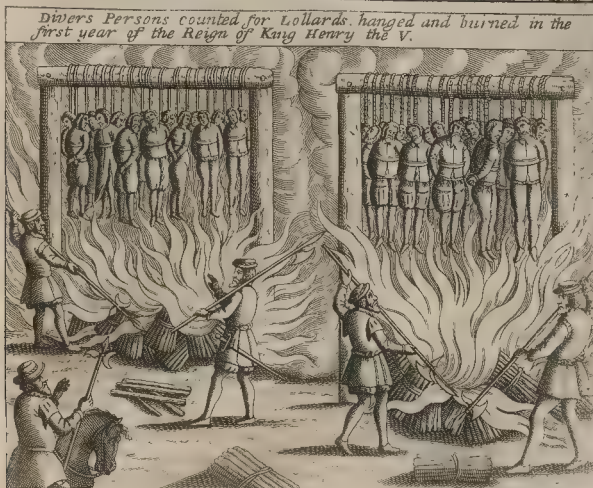 Divers Persons counted for Lollards. hanged and burned in the
first year of the Reign of King Henry the V.